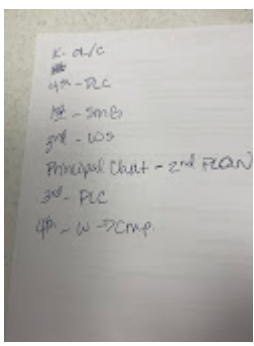 K- OL/C
4th - PLC
1st - SmB
3rd - WS
Principal Chat - 2nd FLOOR
3rd - PLC
4th - W -> Cmp.